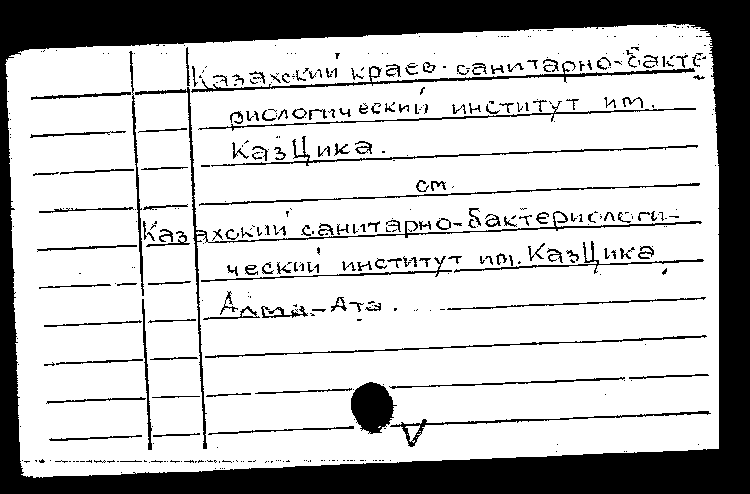 Казахский краев. санитарно-бакте-
риологический институт им.
КазЦика.
см.
Казахский санитарно-бактериологи-
ческий институт им. КазЦика.
Алма-Ата.
V